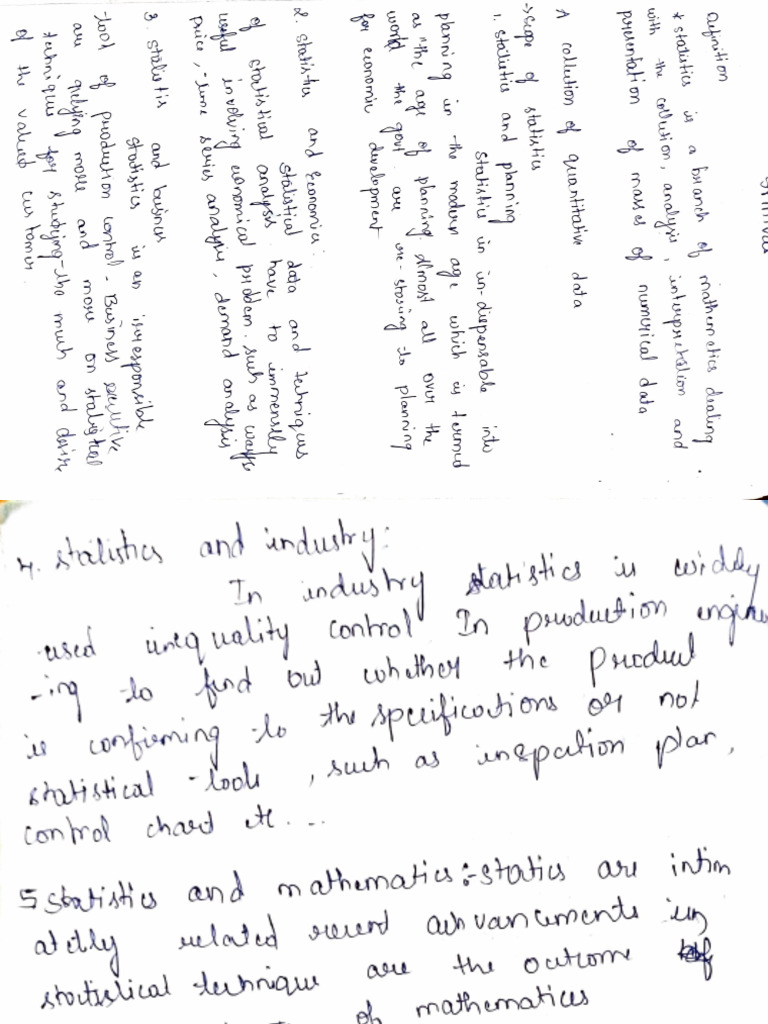 Definition
* statistics is a branch of mathematics dealing
with the collection, analysis, interpretation and
presentation of masses of numerical data
A collection of quantitative data
→ Scope of statistics
1. statistics and planning
statistic in in-dispensable into
planning in the modern age which is termed
as "the age of planning almost all over the
world the govt are re-storing to planning
for economic development
2. statistics and Economics:
statistical data and techniques
of statistical analysis have to immensely
useful involving economical problem. such as wages
price, -time series analysis, demand analysis
3. statistis and business
statistics is an irresponsible
-tool of production control - Business executive
are relying more and more on statistical
techniques for studying the much and desire
of the valued customer.
4. statistics and industry:
In industry statistics is widely
used inequality control In production engine
-ing to find out whether the product
is confirming to the specifications or not
statistical -tools , such as inspection plan,
control chart etc. ...
5 statistics and mathematics:- statics are intim
atelly related recent advancements in
statistical technique are the outcome of
of mathematics